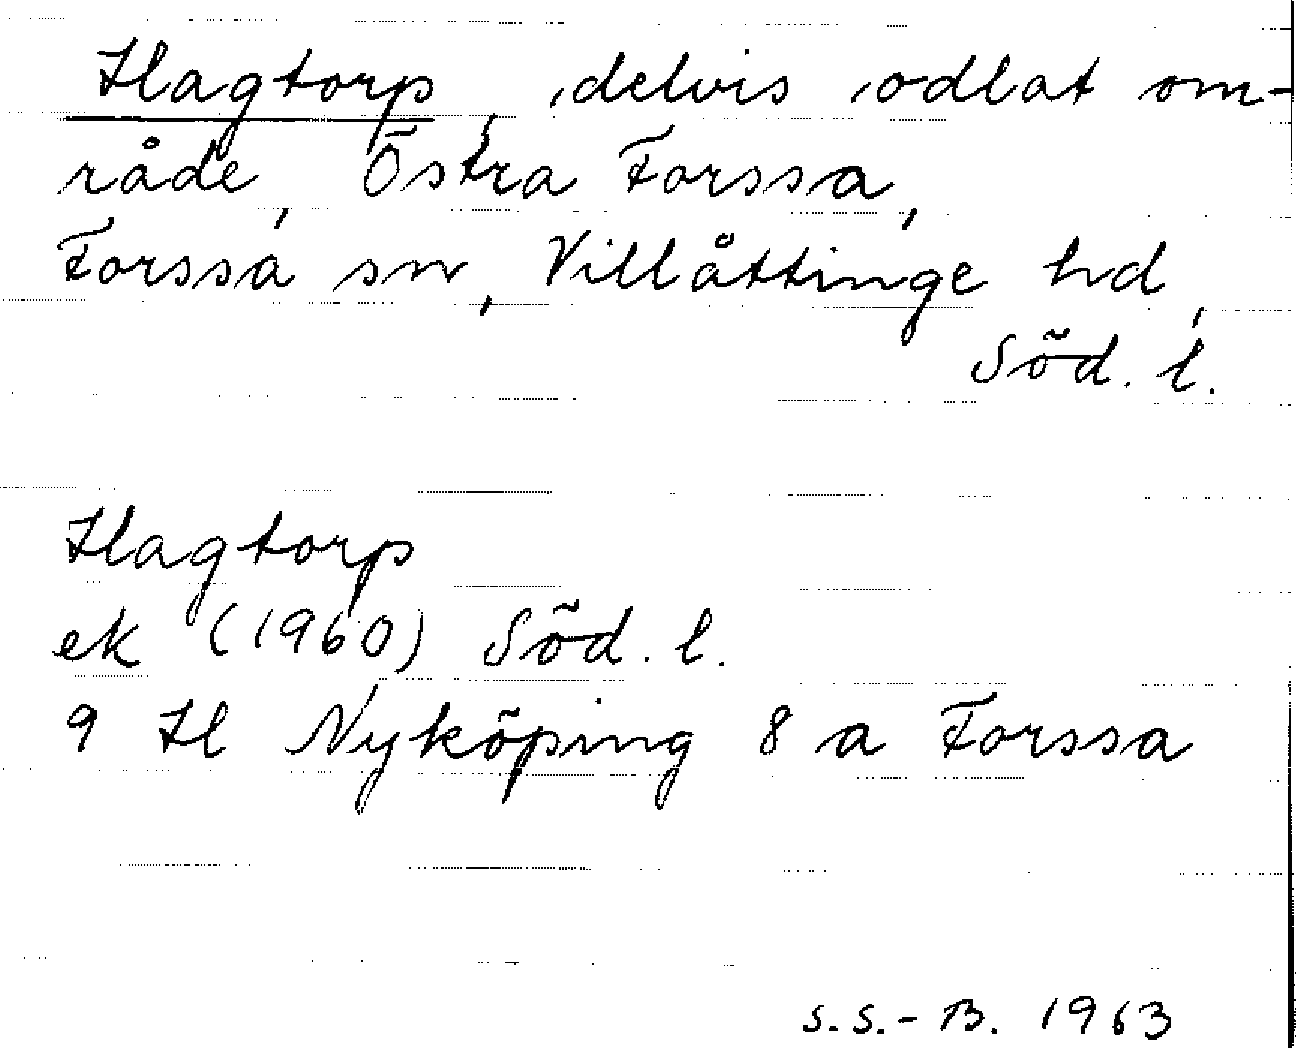 Hagtorp, delvis odlat om-
råde, Östra Forssa,
Forssa sn, Villåttinge hd,
Söd. l.
Hagtorp
ek (1960) Söd. l.
9 H Nyköping 8 a Forssa
S.S.-B. 1963